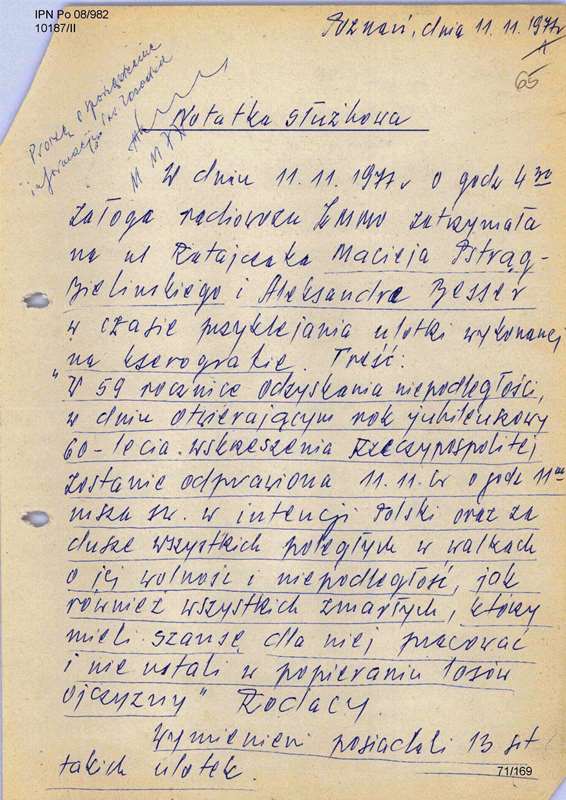 IPN Po 08/982
10187/II
Poznań, dnia 11.11.1977r
65
Proszę o
informację
Notatka służbowa
W dniu 11.11.1977r o godz 4³⁰
załoga radiowozu KMMO zatrzymała
na ul Ratajczaka Macieja Pstrąg-
Bielińskiego i Aleksandra Besser
w czasie przyklejania ulotki wykonanej
na kserografie. Treść:
"W 59 rocznicę odzyskania niepodległości,
w dniu otwierającym rok jubileuszowy
60-lecia wskrzeszenia Rzeczypospolitej
zostanie odprawiona 11.11. br o godz 11⁰⁰
msza św. w intencji Polski oraz za
dusze wszystkich poległych w walkach
o jej wolność i niepodległość, jak
również wszystkich zmarłych, którzy
mieli szansę dla niej pracować
i nie ustali w popieraniu losów
ojczyzny" Rodacy.
Wymienieni posiadali 13 szt
takich ulotek.
71/169